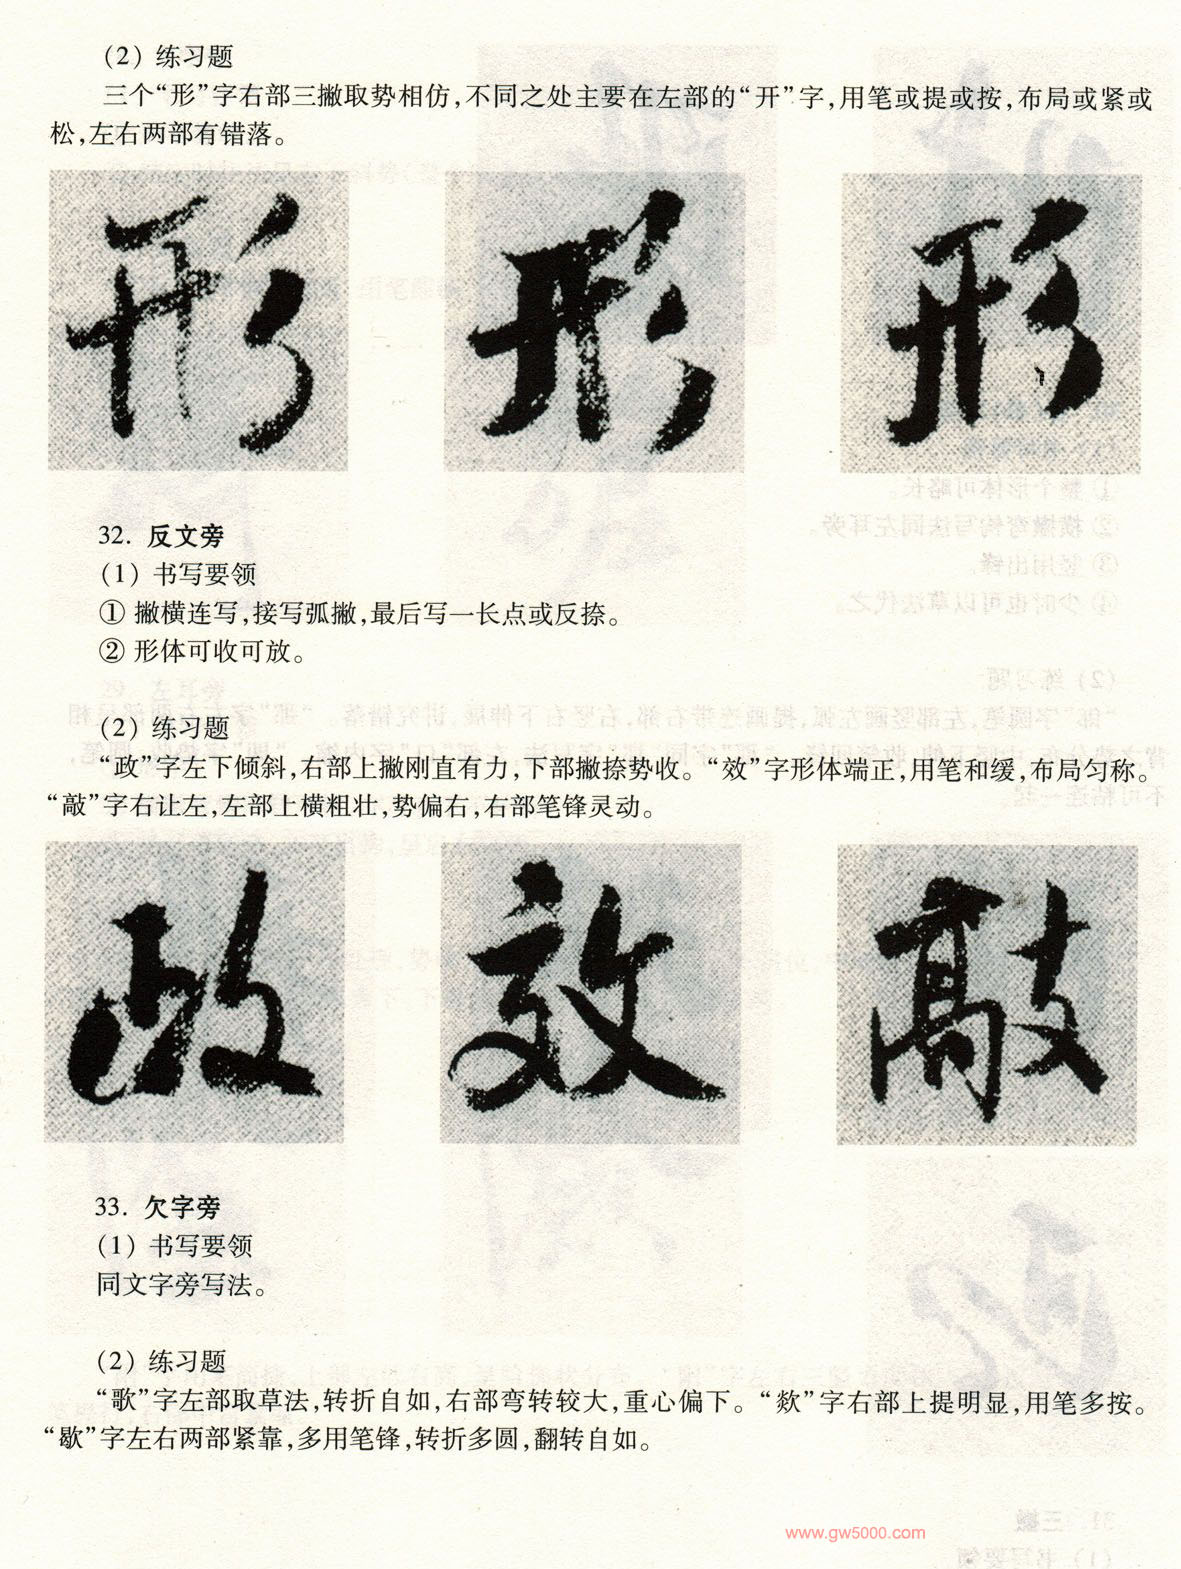 (2) 练习题
三个“形”字右部三撇取势相仿,不同之处主要在左部的“开”字,用笔或提或按,布局或紧或
松,左右两部有错落。
形 形 形
32. 反文旁
(1) 书写要领
① 撇横连写,接写弧撇,最后写一长点或反捺。
② 形体可收可放。
(2) 练习题
“政”字左下倾斜,右部上撇刚直有力,下部撇捺势收。“效”字形体端正,用笔和缓,布局匀称。
“敲”字右让左,左部上横粗壮,势偏右,右部笔锋灵动。
政 效 敲
33. 欠字旁
(1) 书写要领
同文字旁写法。
(2) 练习题
“歌”字左部取草法,转折自如,右部弯转较大,重心偏下。“欻”字右部上提明显,用笔多按。
“歇”字左右两部紧靠,多用笔锋,转折多圆,翻转自如。
www.gw5000.com